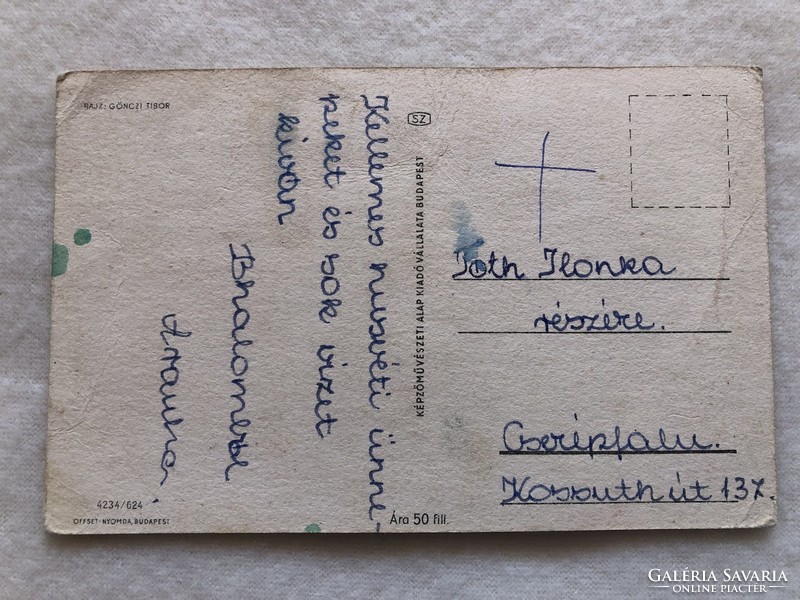 RAJZ: GÖNCZI TIBOR
Kellemes husvéti ünne-
peket és sok vizet
kiván
4234/624
OFFSET-NYOMDA, BUDAPEST
SZ
KÉPZŐMŰVÉSZETI ALAP KIADÓ VÁLLALATA BUDAPEST
Ára 50 fill.
Tóth Ilonka
részére.
Cserépfalu.
Kossuth út 137.
GALÉRIA SAVARIA
ONLINE PIACTÉR